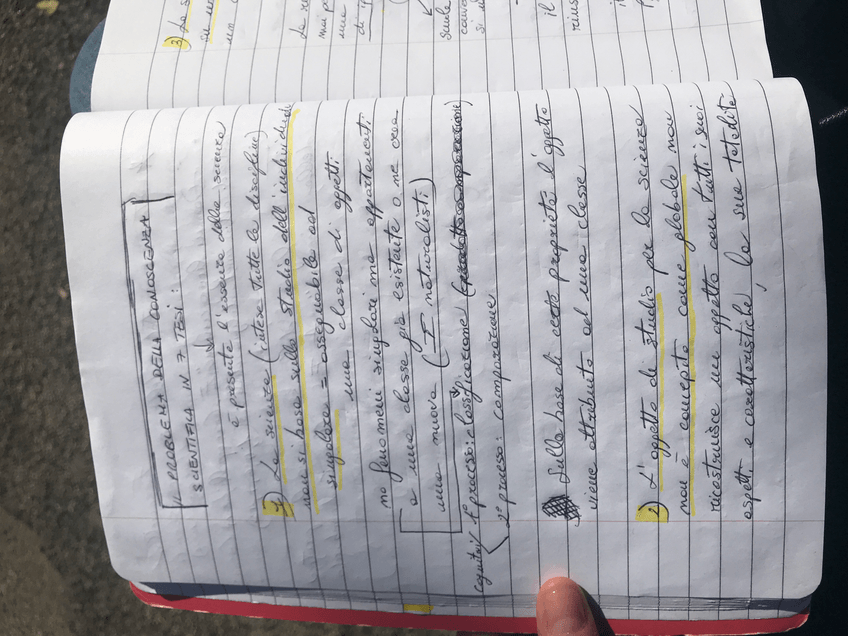 IL PROBLEMA DELLA CONOSCENZA
SCIENTIFICA IN 7 TESI:
è presente l'essenza della scienza
1) La scienza (intese tutte le discipline)
non si basa sullo studio dell'individuale
singolare = assegnabile ad
una classe di oggetti
no fenomeni singolari ma appartenenti
a una classe già esistente o ne crea
una nuova (I naturalisti)
cognitivi 1° processo: classificazione
2° processo: comparazione
Sulla base di certe proprietà l'oggetto
viene attribuito ad una classe
2) L'oggetto di studio per la scienza
non è concepito come globale non
ricostruisce un oggetto con tutti i suoi
aspetti e caratteristiche, la sua totalità
3) La